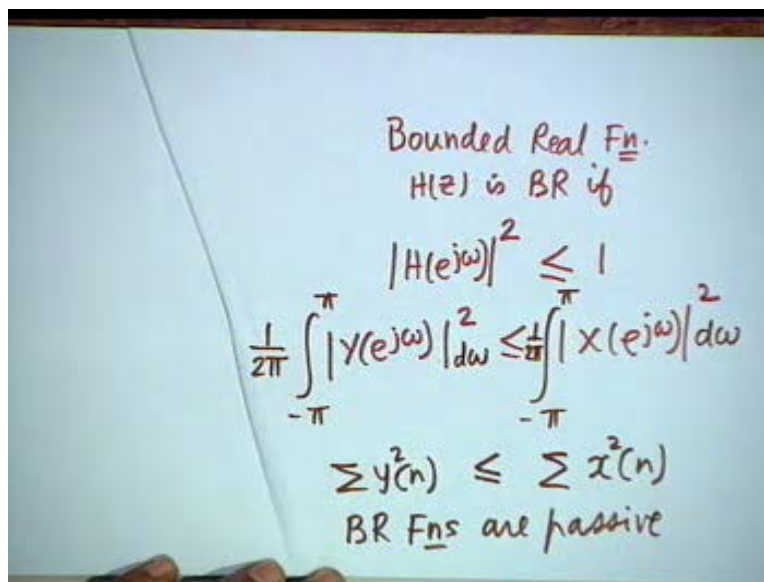 Bounded Real Fn.
H(z) is BR if
|H(e^{jω})|^2 ≤ 1
1/2π ∫_{-π}^{π} |Y(e^{jω})|^2 dω ≤ 1/2π ∫_{-π}^{π} |X(e^{jω})|^2 dω
Σ y^2(n) ≤ Σ x^2(n)
BR Fns are passive